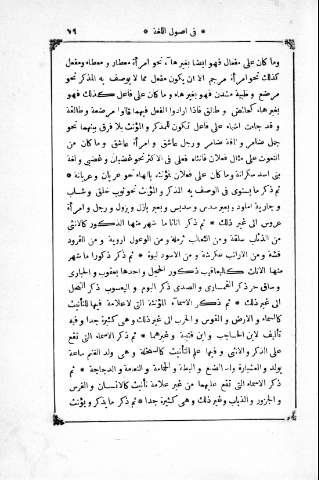 ﴿ فى اصول اللغة ﴾ ٧٩
وما كان على مفعال فهو ايضا بغيرهاء نحو امرأة معطار ومعطاء ومفعل
كذلك نحو امرأة مرجم الا ان يكون مفعل مما لا يوصف به المذكر نحو
مرضع وظبية مشدن فهو بغيرهاء وما كان على فاعل كذلك فهو
بغيرهاء كحائض وطالق فاذا ارادوا الفعل فيهما قالوا مرضعة وطالقة
وقد جاءت اشياء على فاعل تكون للمذكر والمؤنث بلا فرق بينهما نحو
جمل ضامر وناقة ضامر ورجل عاشق وامرأة عاشق وما كان من
النعوت على مثال فعلان فانثاه فعلى فى الاكثر نحو غضبان وغضبى ولغة
بنى اسد سكرانة وما كان على فعلان فمؤنثه بالهاء نحو عريان وعريانة *
ثم ذكر ما يستوى فى الوصف به المذكر والمؤنث نحو ثوب خلق وشاب
وجارية املود وبعير سدس وسديس وبعير بازل وبزول ورجل وامرأة
عروس الى غير ذلك * ثم ذكر اناثا ما شهر منها الذكور كالانثى
من الذئب سلقة ومن الثعالب ثرملة ومن الوعول اروية ومن القرود
قشة ومن الارانب عكرشة ومن الاسود لبوة * ثم ذكر ذكورا ما شهر
منها الاناث كاليعاقيب ذكور الحجل واحدها يعقوب والحبارى
وساق حر ذكر القمارى والصدى ذكر البوم واليعسوب ذكر النحل
الى غير ذلك * ثم ذكر الاسماء المؤنثة التى لا علامة فيها للتأنيث
كالسماء والارض والقوس والحرب الى غير ذلك وهى كثيرة جدا وفيه
تأليف لابن الحاجب وابن قتيبة وغيرهما * ثم ذكر الاسماء التى تقع
على الذكر والانثى وفيها علم التأنيث كالسخلة وهى ولد الغنم ساعة
يولد والعشبارة ولد الضبع والبطة والحمامة والنعامة والدجاجة * ثم
ذكر الاسماء التى تقع عليهما من غير علامة تأنيث كالانسان والفرس
والجزور والذباب وغير ذلك وهى كثيرة جدا * ثم ذكر ما يذكر ويؤنث